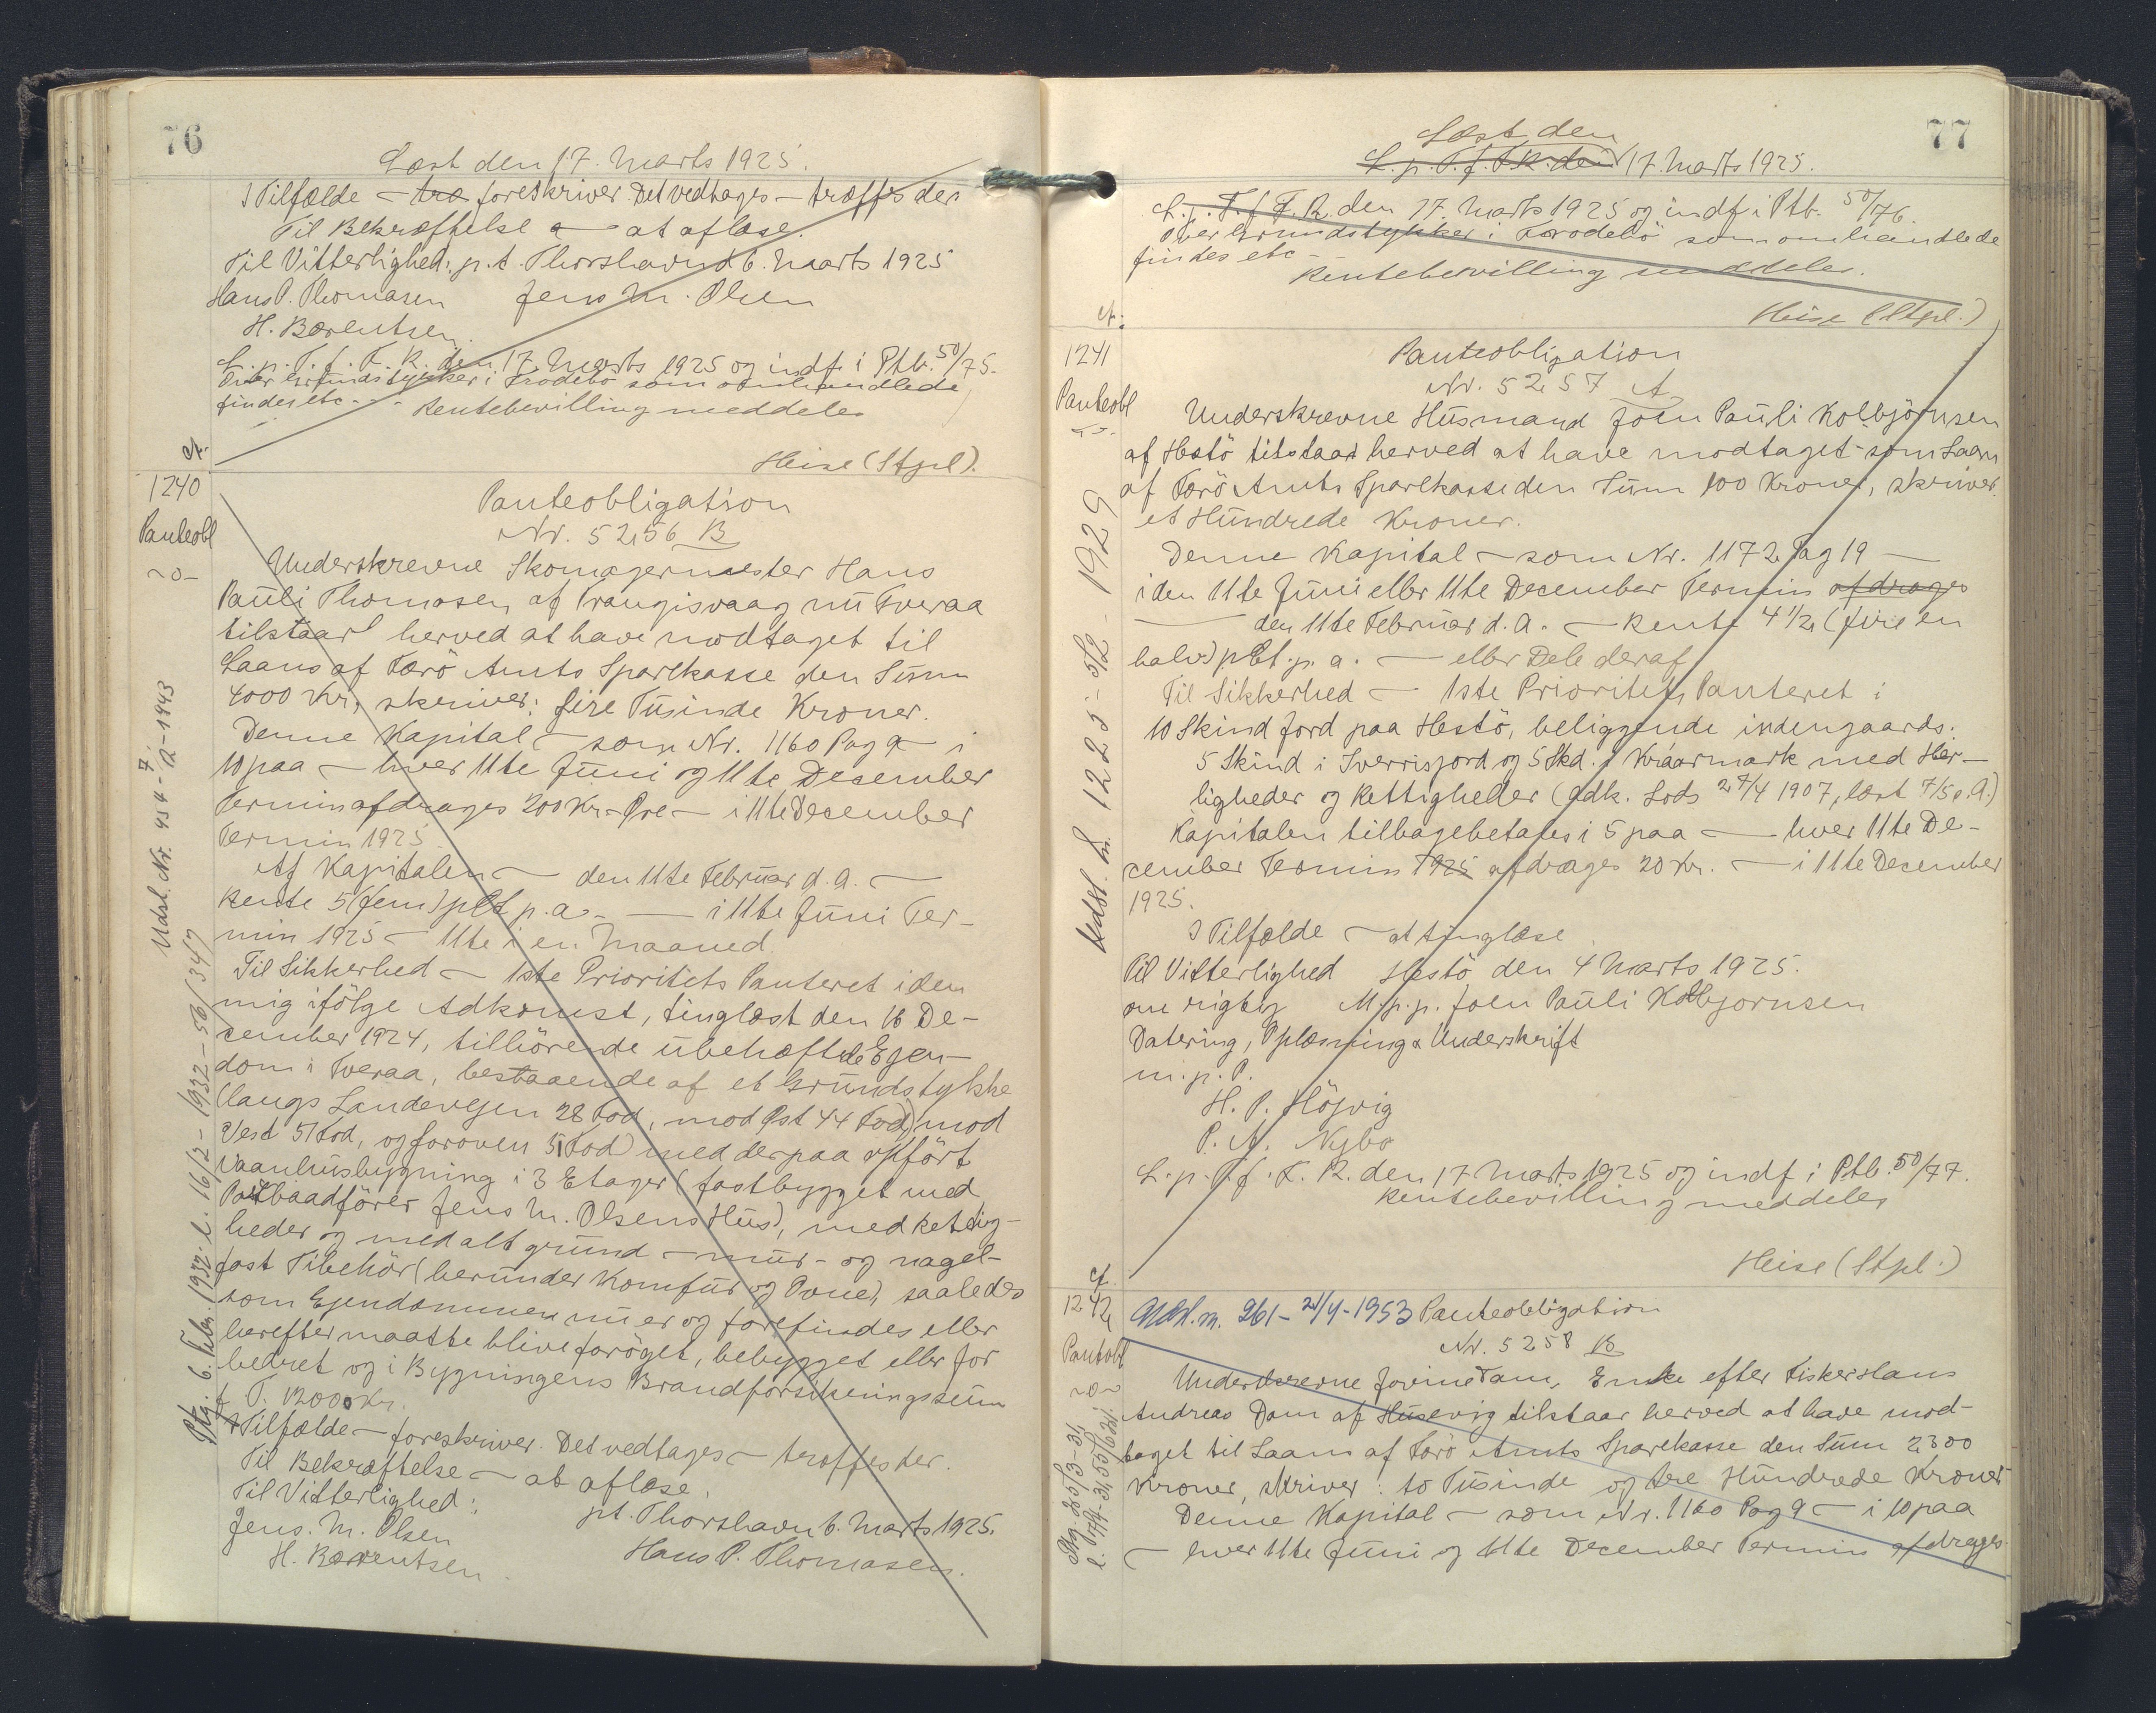 76
Læst den 17. Marts 1925.
I Tilfælde — træ foreskriver. Det vedtages — træffes der
Til Bekræftelse — at aflæse.
Til Vitterlighed: p.t. Thorshavn d. 6. Marts 1925
Hans P. Thomasen Jens M. Olsen
H. Bærentsen
L. p. T. f. F. R. den 17. Marts 1925 og indf. i Ptb. 50/75.
Over Grundstykker i Frodebö som omhandlede
findes etc - - - Rentebevilling meddeles
Heise (Stpl).
ct.
1240
Panteobl
Panteobligation
Nr. 5256 B
Underskrevne Skomagermester Hans
Pauli Thomasen af Trangisvaag nu Tveraa
tilstaar herved at have modtaget til
Laans af Færö Amts Sparekasse den Sum
4000 Kr, skriver: fire Tusinde Kroner.
Denne Kapital — som Nr. 1160 Pag 9 — i
10 paa — hver 11te Juni og 11te December
Termin afdrages 200 Kr. — Øre — i 11te December
Termin 1925.
Af Kapitalen — den 11te Februar d. A. —
Rente 5 (fem) pCt p. a. — i 11te Juni Ter-
min 1925 — 11te i en Maaned.
Til Sikkerhed — 1ste Prioritets Panteret i den
mig ifölge Adkomst, tinglæst den 16 De-
cember 1924, tilhörende ubehæftede Ejen-
dom i Tveraa, bestaaende af et Grundstykke
(langs Landevejen 28 Fod, mod Øst 44 Fod, mod
Vest 51 Fod, og foroven 51 Fod) med derpaa opfört
Vaanhusbygning i 3 Etager (fastbygget med
Postbaadförer Jens M. Olsens Hus), med Rettig-
heder og med alt grund — mur- og nagel-
fast Tibehör (herunder Komfur og Ovne), saaledes
som Ejendommen nu er og forefindes eller
herefter maatte blive foröget, bebygget eller for
bedret og i Bygningens Brandforsikringssum
f. T. 12000 Kr.
I Tilfælde — foreskriver. Det vedtages — træffes der.
Til Bekræftelse — at aflæse.
Til Vitterlighed: pt. Thorshavn 6. Marts 1925.
Jens. M. Olsen Hans P. Thomasen.
H. Bærentsen.
Udsl. Nr. 954 - 7/12 - 1943
Ptg. 6. Febr. 1932. l. 16/2 - 1932 - 56/347
77
Læst den
L. p. T. f. F. R. den 17. Marts 1925.
L. p. T. f. F. R. den 17. Marts 1925 og indf. i Ptb. 50/76.
Over Grundstykker i Frodebö som omhandlede
findes etc —
Rentebevilling meddeles.
Heise (Stpl.)
ct.
1241
Panteobl
Panteobligation
Nr. 5257 A
Underskrevne Husmand Joen Pauli Kolbjörnsen
af Hestö tilstaar herved at have modtaget som Laan
af Færö Amts Sparekasse den Sum 100 Kroner, skriver.
et Hundrede Kroner.
Denne Kapital — som Nr. 1172 Pag 19 —
i den 11te Juni eller 11te December Termin afdrages
— den 11te Februar d. A. — Rente 4 1/2 (fire en
halv) pCt. p. a. — eller Dele deraf
Til Sikkerhed — 1ste Prioritets Panteret i
10 Skind Jord paa Hestö, beliggende indengaards:
5 Skind i Sverrisjord og 5 Skd. i Kráarmark med Her-
ligheder og Rettigheder (Adk. Lods 27/4 1907, læst 7/5 s. A.)
Kapitalen tilbagebetales i 5 paa — hver 11te De-
cember Termin 1925 afdrages 20 Kr. — i 11te December
1925.
I Tilfælde — at tinglæse
Til Vitterlighed Hestö den 4 Marts 1925.
om rigtig M. p. p. Joen Pauli Kolbjornsen
Datering, Oplæsning & Underskrift
m. p. P.
H. P. Höjvig
P. A. Nybo
L. p. T. f. F. R. den 17 Marts 1925 og indf i Ptb. 50/77.
Rentebevilling meddeles
Heise (Stpl.)
Udsl. nr. 1225 - 5/2 - 1929
ct.
1242
Panteobl
Udsl. nr. 261 - 21/4 - 1953 Panteobligation
Nr. 5258 B
Underskrevne Jovine Dam, Enke efter Fisker Hans
Andreas Dam af Husevig tilstaar herved at have mod-
taget til Laans af Færö Amts Sparekasse den Sum 2300
Kroner, skriver: to Tusinde og tre Hundrede Kroner
Denne Kapital — som Nr. 1160 Pag 9 — i 10 paa
— hver 11te Juni og 11te December Termin afdrages